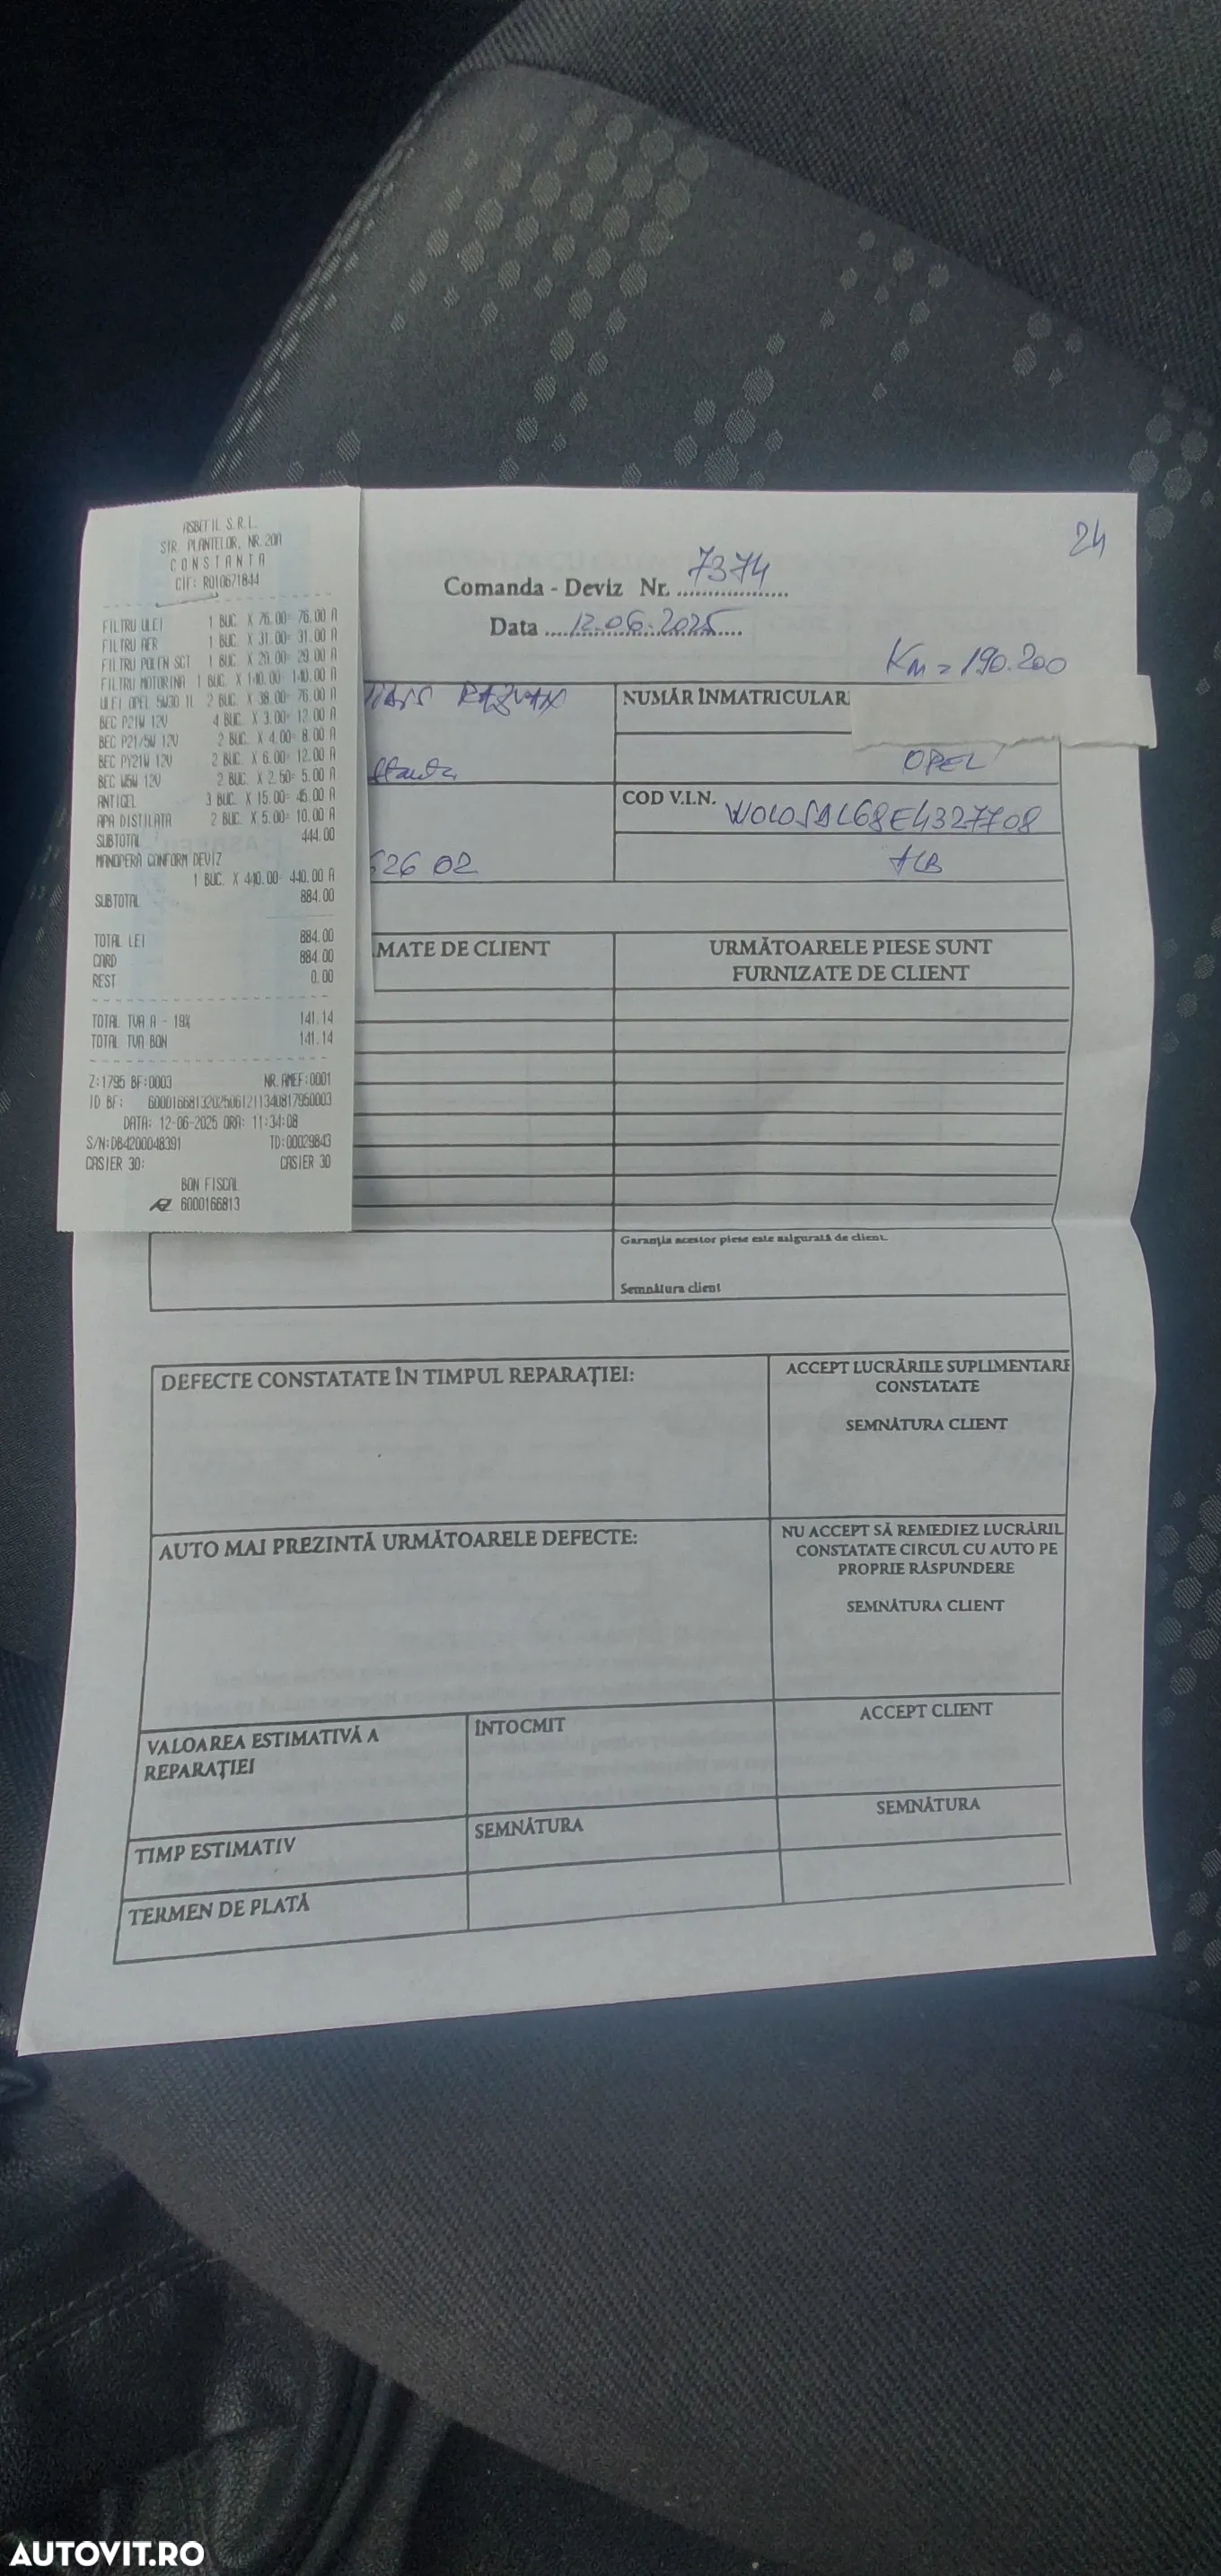 ASBEFIL S.R.L.
STR. PLANTELOR, NR.20A
CONSTANTA
CIF: RO10671844
FILTRU ULEI 1 BUC. X 76.00= 76.00 A
FILTRU AER 1 BUC. X 31.00= 31.00 A
FILTRU POLEN SCT 1 BUC. X 29.00= 29.00 A
FILTRU MOTORINA 1 BUC. X 140.00= 140.00 A
ULEI OPEL 5W30 1L 2 BUC. X 38.00= 76.00 A
BEC P21W 12V 4 BUC. X 3.00= 12.00 A
BEC P21/5W 12V 2 BUC. X 4.00= 8.00 A
BEC PY21W 12V 2 BUC. X 6.00= 12.00 A
BEC W5W 12V 2 BUC. X 2.50= 5.00 A
ANTIGEL 3 BUC. X 15.00= 45.00 A
APA DISTILATA 2 BUC. X 5.00= 10.00 A
SUBTOTAL 444.00
MANOPERA CONFORM DEVIZ
1 BUC. X 440.00= 440.00 A
SUBTOTAL 884.00
TOTAL LEI 884.00
CARD 884.00
REST 0.00
TOTAL TVA A - 19% 141.14
TOTAL TVA BON 141.14
Z:1795 BF:0003 NR.AMEF:0001
ID BF: 6000166813202506121134081795​0003
DATA: 12-06-2025 ORA: 11:34:08
S/N:DB4200048391 TD:00029843
CASIER 30: CASIER 30
BON FISCAL
6000166813
24
Comanda - Deviz Nr. 7374
Data 12.06.2025
Km = 190.200
RAZVAN
NUMĂR ÎNMATRICULAR
OPEL
COD V.I.N. W0L0SDL68E4327708
526 02
MATE DE CLIENT
URMĂTOARELE PIESE SUNT
FURNIZATE DE CLIENT
Garanția acestor piese este asigurată de client.
Semnătura client
DEFECTE CONSTATATE ÎN TIMPUL REPARAȚIEI:
ACCEPT LUCRĂRILE SUPLIMENTARE
CONSTATATE
SEMNĂTURA CLIENT
AUTO MAI PREZINTĂ URMĂTOARELE DEFECTE:
NU ACCEPT SĂ REMEDIEZ LUCRĂRIL
CONSTATATE CIRCUL CU AUTO PE
PROPRIE RĂSPUNDERE
SEMNĂTURA CLIENT
VALOAREA ESTIMATIVĂ A
REPARAȚIEI
ÎNTOCMIT
ACCEPT CLIENT
TIMP ESTIMATIV
SEMNĂTURA
SEMNĂTURA
TERMEN DE PLATĂ
AUTOVIT.RO